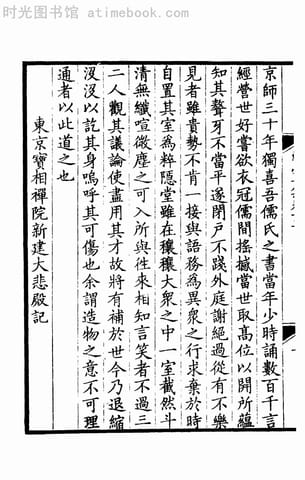 时光图书馆 atimebook.com
京師三十年獨喜吾儒氏之書當年少時誦數百千言
經營世好嘗欲衣冠儒間搖撼當世取高位以開所蘊
知其聲牙不當平遂閉戶不踐外庭謝絕過從有不樂
見者雖貴勢不肯一接與語務為異衆之行求棄於時
自置其室為粹隱堂雖在穰穰大衆之中一室截然斗
清無纖喧微塵之可入所與徃來相知言笑者不過三
二人觀其議論使盡用其才故將有補於世今乃退縮
汲汲以訖其身嗚呼其可傷也余謂造物之意不可理
通者以此道之也
東京寶相禪院新建大悲殿記